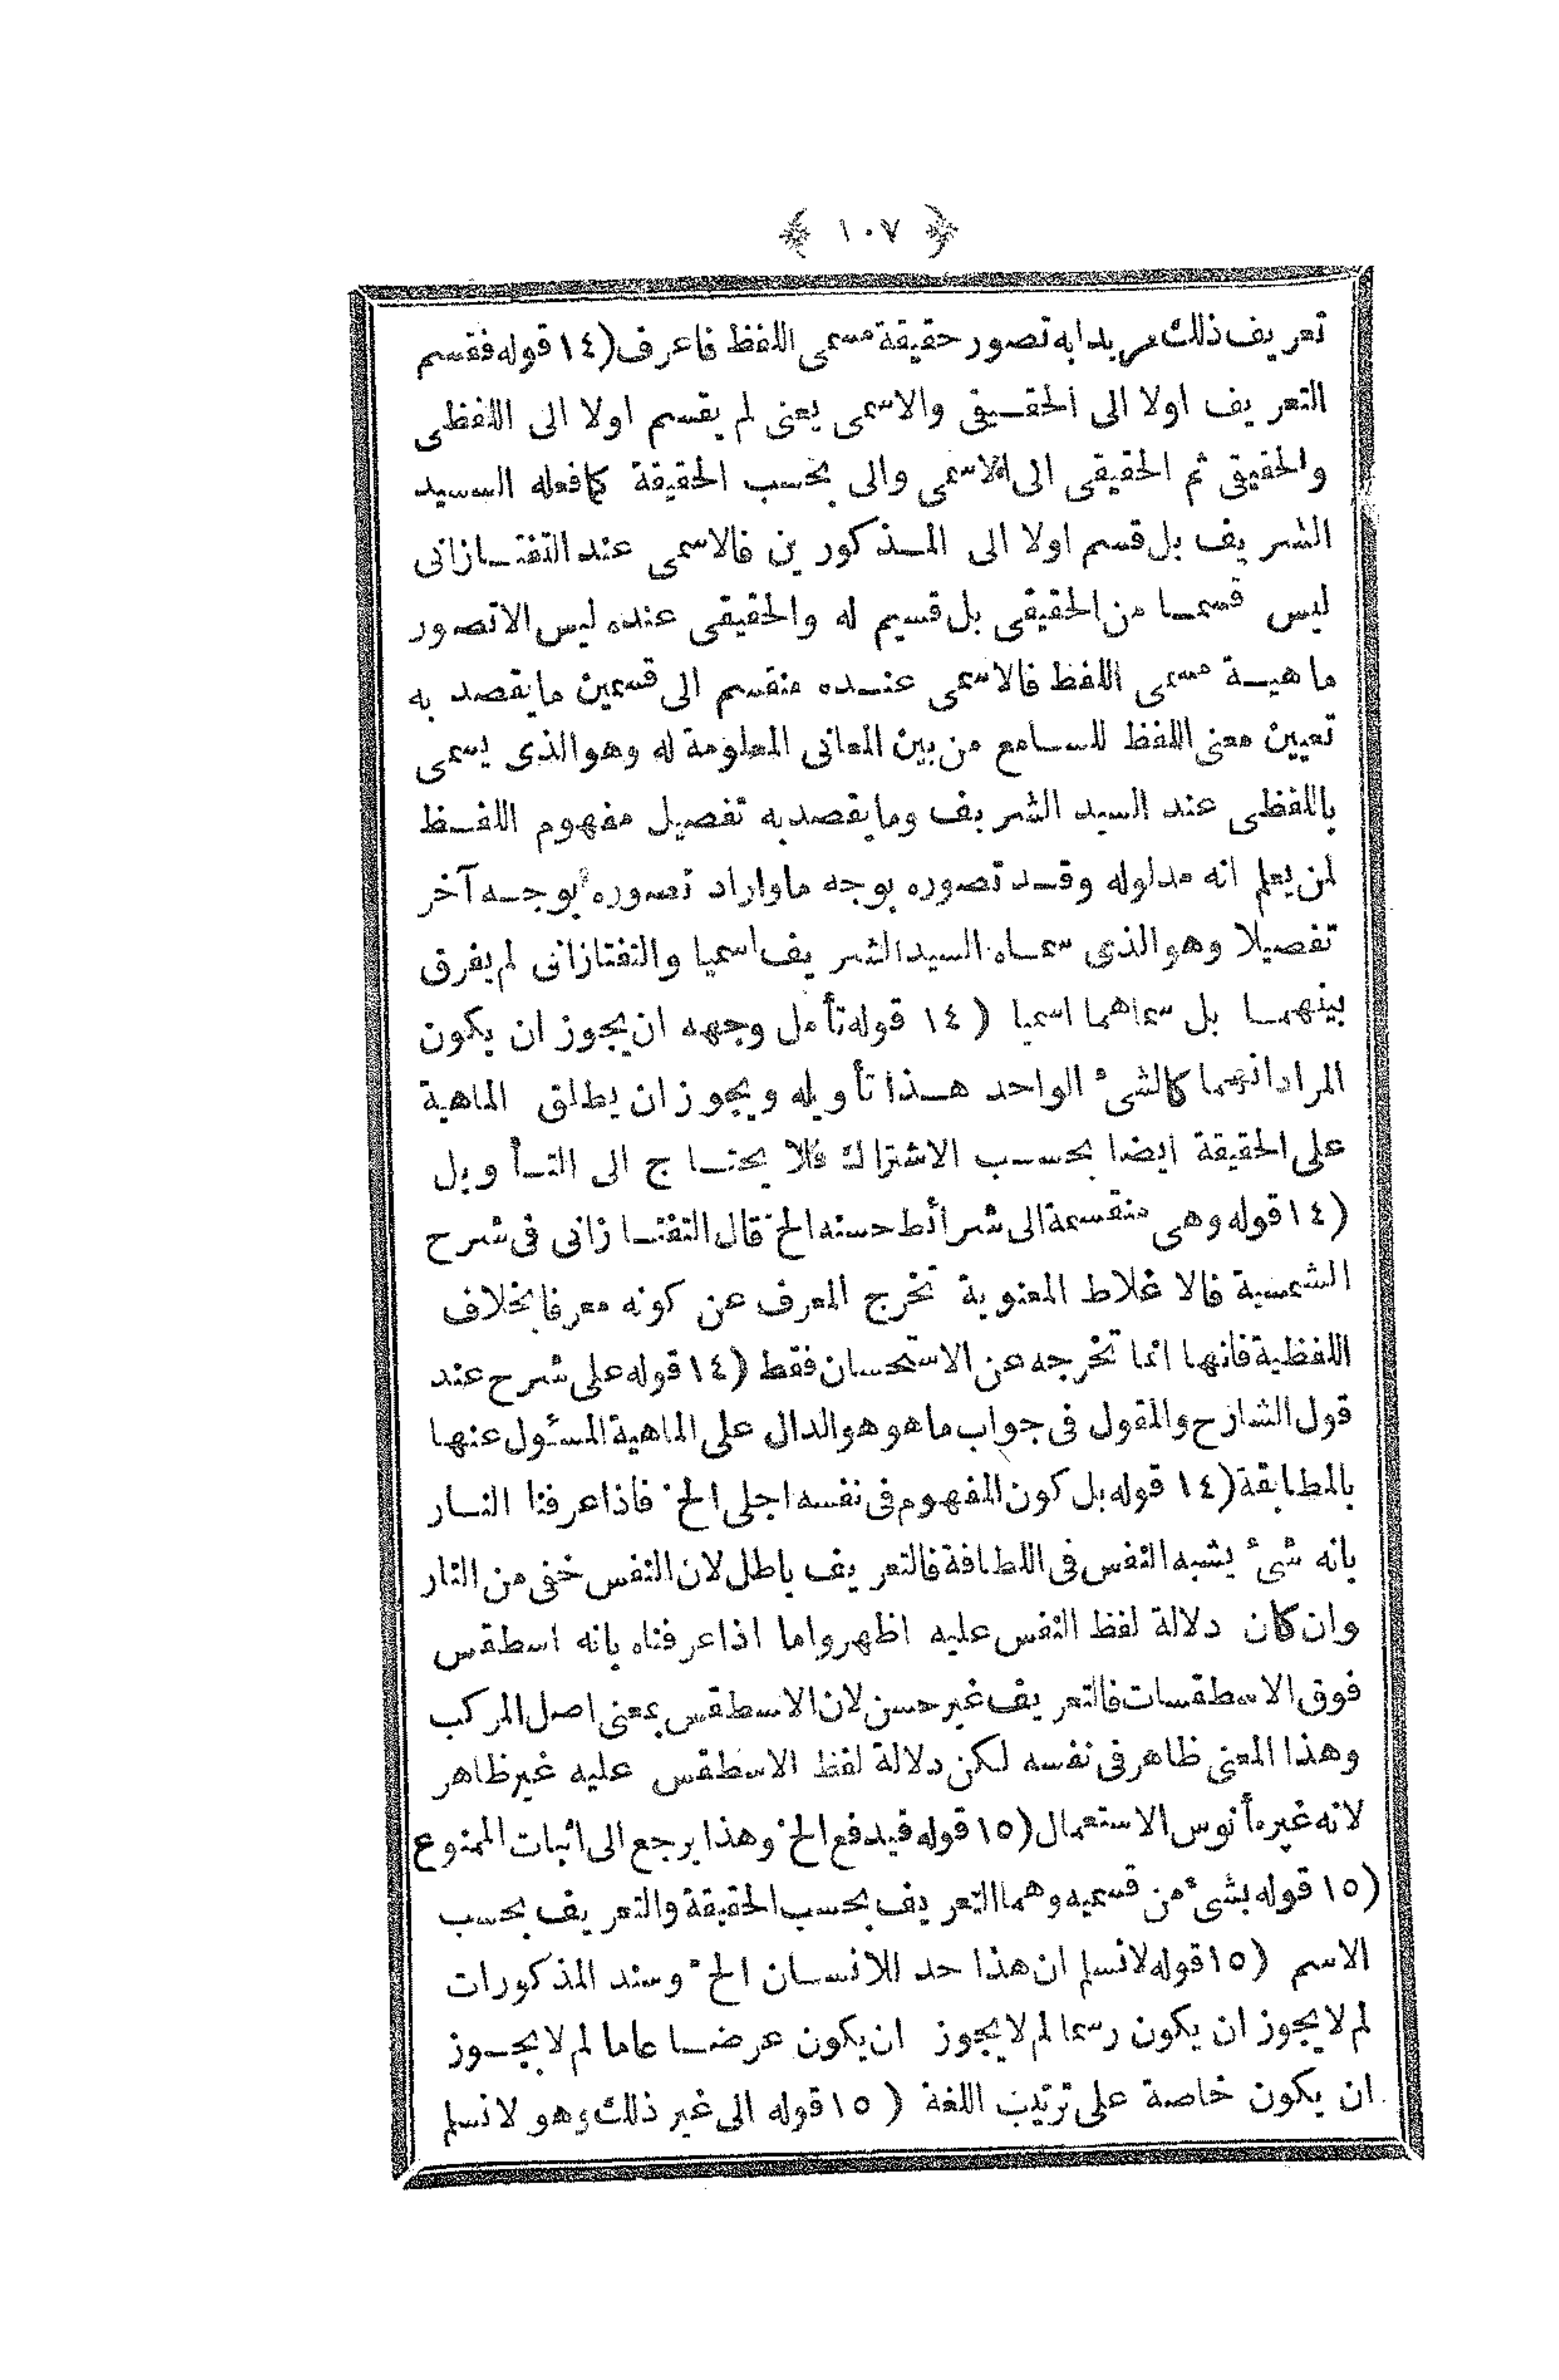 ﴿ ١٠٧ ﴾
تعريف ذلك مريدا به تصور حقيقة مسمى اللفظ فاعرف (١٤ قوله فقسم
التعريف اولا الى الحقيقى والاسمى يعنى لم يقسم اولا الى اللفظى
والحقيقى ثم الحقيقى الى الاسمى والى بحسب الحقيقة كما فعله السيد
الشريف بل قسم اولا الى المذكورين فالاسمى عند التفتازانى
ليس قسما من الحقيقى بل قسيم له والحقيقى عنده ليس الا تصور
ماهية مسمى اللفظ فالاسمى عنده منقسم الى قسمين ما يقصد به
تعيين معنى اللفظ للسامع من بين المعانى المعلومة له وهو الذى يسمى
باللفظى عند السيد الشريف وما يقصد به تفصيل مفهوم اللفظ
لمن يعلم انه مدلوله وقد تصوره بوجه ما واراد تصوره بوجه آخر
تفصيلا وهو الذى سماه السيد الشريف اسميا والتفتازانى لم يفرق
بينهما بل سماهما اسميا (١٤ قوله تأمل وجهه ان يجوز ان يكون
المراد انهما كالشئ الواحد هذا تأويله ويجوز ان يطلق الماهية
على الحقيقة ايضا بحسب الاشتراك فلا يحتاج الى التأويل
(١٤ قوله وهى منقسمة الى شرائط حسنه الخ قال التفتازانى فى شرح
الشمسية فالاغلاط المعنوية تخرج المعرف عن كونه معرفا بخلاف
اللفظية فانها انما تخرجه عن الاستحسان فقط (١٤ قوله على شرح عند
قول الشارح والمقول فى جواب ما هو هو الدال على الماهية المسئول عنها
بالمطابقة (١٤ قوله بل كون المفهوم فى نفسه اجلى الخ فاذا عرفنا النار
بانه شئ يشبه النفس فى اللطافة فالتعريف باطل لان النفس خفى من النار
وان كان دلالة لفظ النفس عليه اظهر واما اذا عرفناه بانه اسطقس
فوق الاسطقسات فالتعريف غير حسن لان الاسطقس بمعنى اصل المركب
وهذا المعنى ظاهر فى نفسه لكن دلالة لفظ الاسطقس عليه غير ظاهر
لانه غير مأنوس الاستعمال (١٥ قوله فيدفع الخ وهذا يرجع الى اثبات الممنوع
(١٥ قوله بشئ من قسميه وهما التعريف بحسب الحقيقة والتعريف بحسب
الاسم (١٥ قوله لا نسلم ان هذا حد للانسان الخ وسند المذكورات
لم لا يجوز ان يكون رسما لم لا يجوز ان يكون عرضا عاما لم لا يجوز
ان يكون خاصة على ترتيب اللغة (١٥ قوله الى غير ذلك وهو لا نسلم